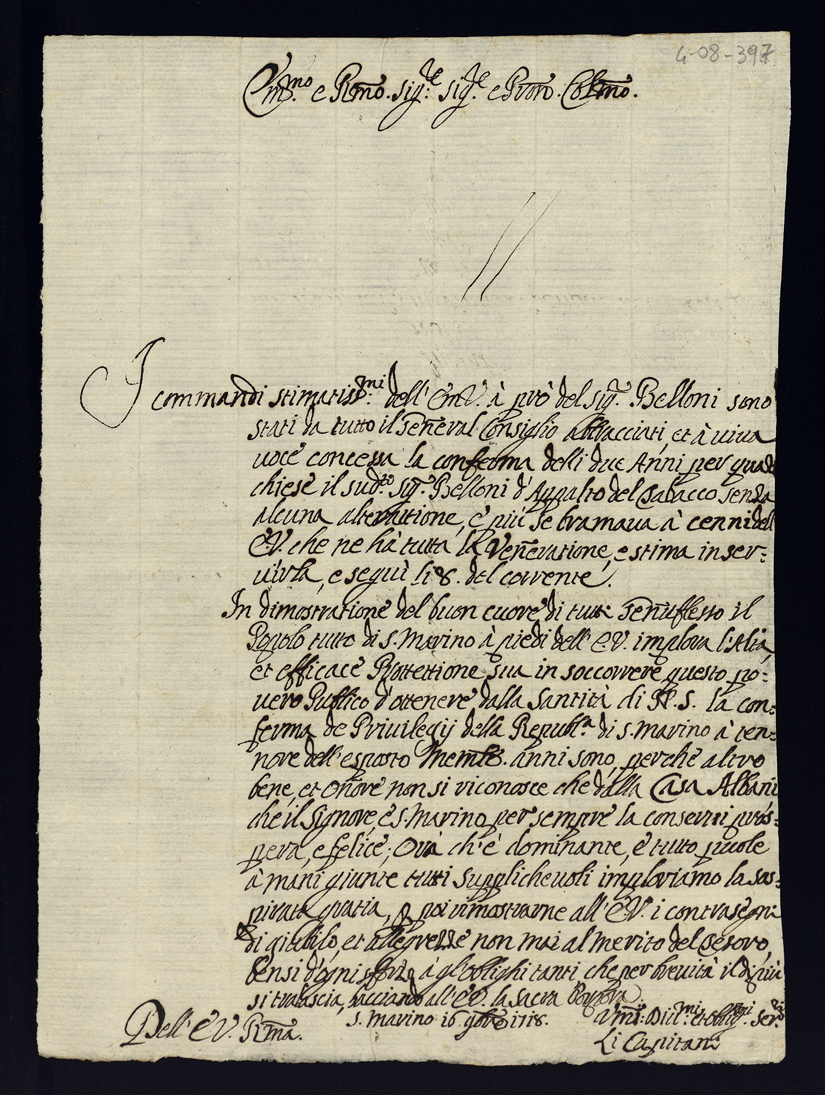 4-08-397
Em.mo e Rmo. Sig:re Sig:re e Pron. Colmo.
I commandi stimatiss:mi dell' Em.V. à prò del sig:r Belloni sono
stati da tutto il General Consiglio abbracciati, et à viva
voce concessa la conferma delli due Anni per quali
chiese il sud:to Sig:r Belloni d'Appalto del Tabacco senza
alcuna alteratione, e più se bramava à cenni dell'
E.V. che ne hà tutta la Veneratione, e stima in ser-
virla, e seguì li 8. del corrente.
In dimostratione del buon cuore di tutti genuflesso il
Popolo tutto di S. Marino à piedi dell' E.V. implora l'Alta,
et efficace Protettione sua in soccorrere questo po-
vero Publico d'ottenere dalla Santità di N.S. la con-
ferma de Privilegij della Republ.a di S. Marino à ten-
nore dell'esposto anni sono, perche altro
bene, et Onore non si riconosce che dalla Casa Albani
che il Signore, e S. Marino per sempre la conservi pros-
pera, e felice; Ora ch'è dominante, e tutto puole
à mani giunte tutti supplichevoli imploriamo la sos-
pirata gratia, p poi dimostrarne all' E.V. i contrasegni
di giubilo, et allegrezze non mai al merito del Tesoro,
bensi d'ogni sforzo à gl'oblighi tanti che per brevità il di più
si tralascia, bacciando all' E.V. la sacra Porpora.
Dell' E.V. Rma. S. Marino 16 9bre 1718. Umi: Div:mi et oblig:mi Ser:ri
Li Capitani